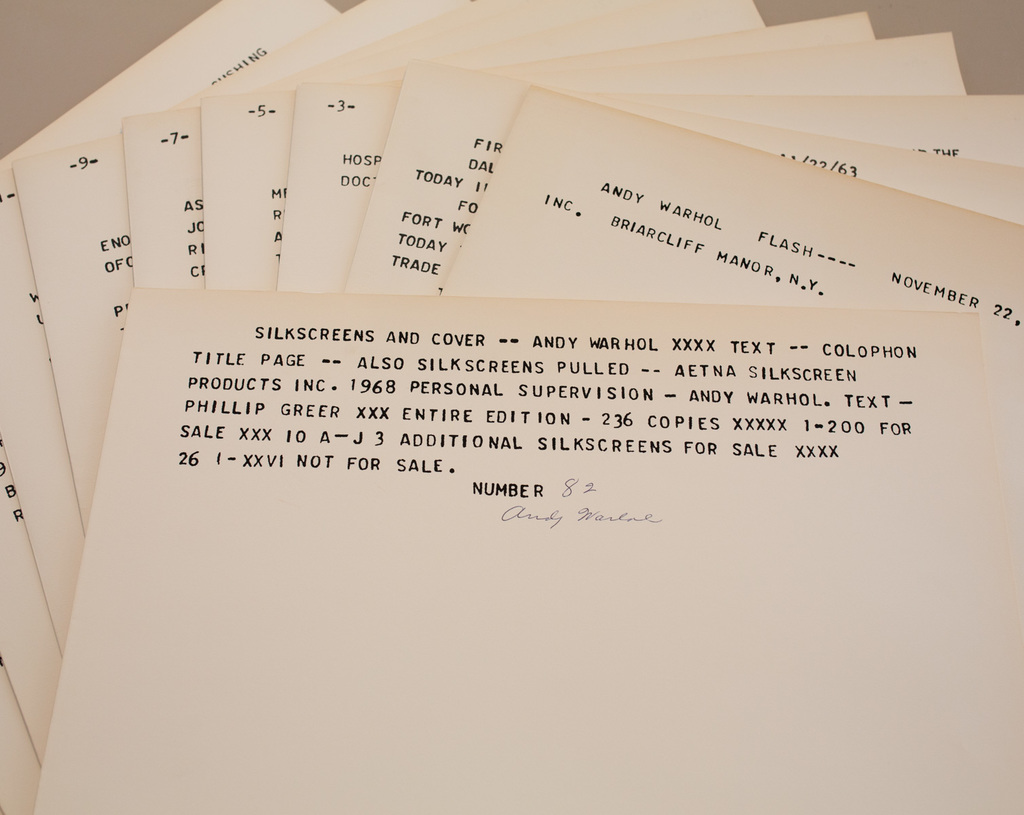 USHING
-9-
-7-
-5-
-3-
ENO
OFC
AS
JO
RI
HOSP
DOC
FIR
DAL
TODAY
FO
FORT WO
TODAY
TRADE
/22/63
THE
ANDY WARHOL FLASH---- NOVEMBER 22,
INC. BRIARCLIFF MANOR, N.Y.
B
R
SILKSCREENS AND COVER -- ANDY WARHOL XXXX TEXT -- COLOPHON
TITLE PAGE -- ALSO SILKSCREENS PULLED -- AETNA SILKSCREEN
PRODUCTS INC. 1968 PERSONAL SUPERVISION - ANDY WARHOL. TEXT -
PHILLIP GREER XXX ENTIRE EDITION - 236 COPIES XXXXX 1-200 FOR
SALE XXX 10 A-J 3 ADDITIONAL SILKSCREENS FOR SALE XXXX
26 I-XXVI NOT FOR SALE.
NUMBER 82
Andy Warhol